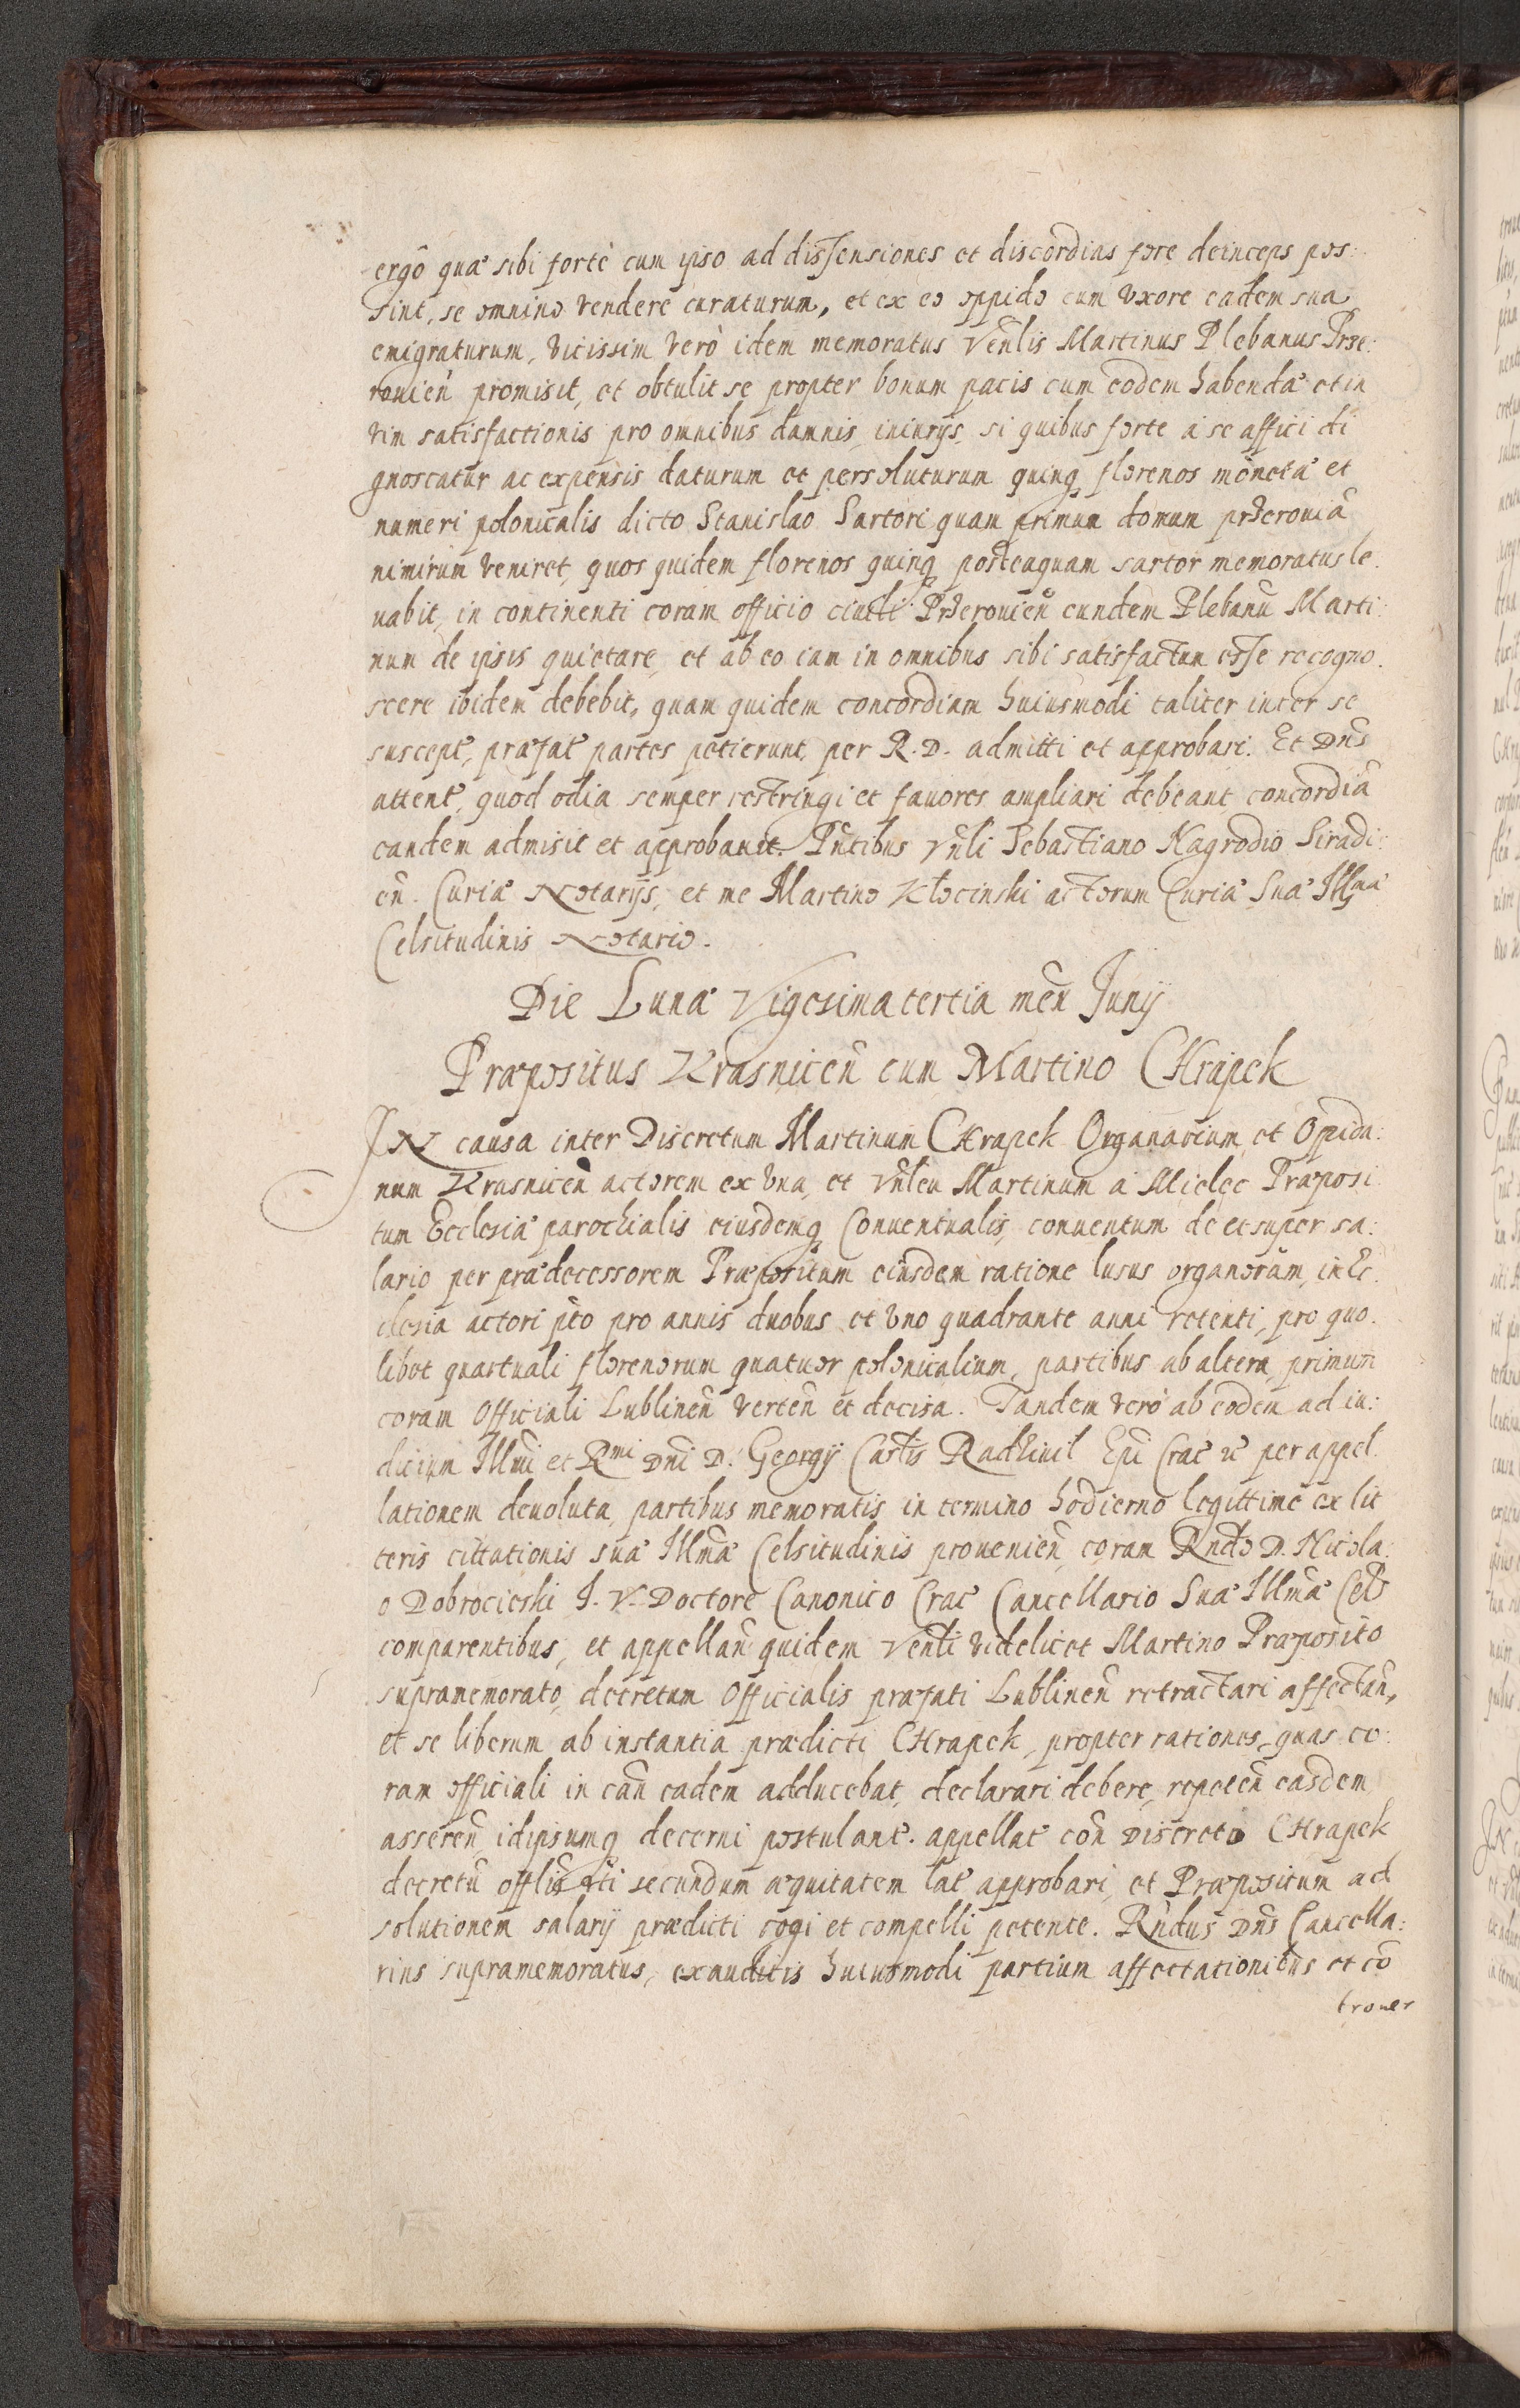 ergô quæ sibi fortè cum ipso ad dissensiones et discordias fore deinceps pos:
sint, se omnino vendere curaturum, et ex eo oppido cum vxore eadem sua
emigraturum, vicissim verò idem memoratus Veñlis Martinus Plebanus Prze:
rouieñ promisit, et obtulit se propter bonum pacis cum eodem habendæ et in
vim satisfactionis pro omnibus damnis, iniurijs, si quibus forte à se affici di
gnoscatur ac expensis daturum et persoluturum quinq florenos monetæ et
numeri polonicalis dicto Stanislao Sartori quam primum domum przerouiã
nimirum veniret, quos quidem florenos quinq posteaquam sartor memoratus le:
uabit, in continenti coram officio ciuili Przerouieñ eundem Plebanũ Marti:
num de ipsis quietare, et ab eo iam in omnibus sibi satisfactum esse recogno.
scere ibidem debebit, quam quidem concordiam huiusmodi taliter inter se
suscept, præfat partes petierunt, per R. D. admitti et approbari. Et Dñs
attent, quod odia semper restringi et fauores ampliari debeant concordiã
eandem admisit et approbauit. Pñtibus vñli Sebastiano Nagrodio Siradi:
eñ. Curiæ Notarijs, et me Martino Kłocinski actorum Curiæ Suæ Illmæ
Celsitudinis Notario.
Die Lunæ Vigesimatertia meñ Junij
Præpositus Krasniceñ cum Martino CHrapek
IN causa inter Discretum Martinum CHrapek Organarium et Opida:
num Krasniceñ actorem ex vna, et vñlem Martinum à Mielec Præposi
tum Ecclesiæ parochialis eiusdemq Conuentualis, conuentum de et super sa:
lario per prædecessorem Præpositum eiusdem ratione lusus organorum, in Ec
clesia actori pto pro annis duobus et vno quadrante anni retenti, pro quo.
libet quartuali florenorum quatuor polonicalium, partibus ab altera, primum
coram Officiali Lublineñ verteñ et decisa. Tandem verò ab eodem ad iu:
dicium Illmi et Rmi Dñi D. Georgij Carlis Radziuil Epi Crac et per appel
lationem deuoluta, partibus memoratis in termino hodierno legittime ex lit
teris cittationis suæ Illmæ Celsitudinis prouenieñ, coram Rndo D. Nicola:
o Dobrocieski I. V. Doctore Canonico Crac Cancellario Suæ Illmæ Cels
comparentibus, et appellañ quidem Venli videlicet Martino Præposito
supramemorato, decretum Officialis præfati Lublineñ retractari affectañ,
et se liberum ab instantia prædicti CHrapek, propter rationes, quas co:
ram officiali in cañ eadem adducebat, declarari debere, repeteñ easdem
assereñ, idipsumq decerni postulant. appellat coñ Discreto CHrapek
decretũ offlis pti secundum æquitatem lat approbari, et Præpositum ad
solutionem salarij prædicti cogi et compelli petente. Rñdus Dñs Cancella:
rius supramemoratus, exauditis huiusmodi partium affectationibus et cõ
trouer